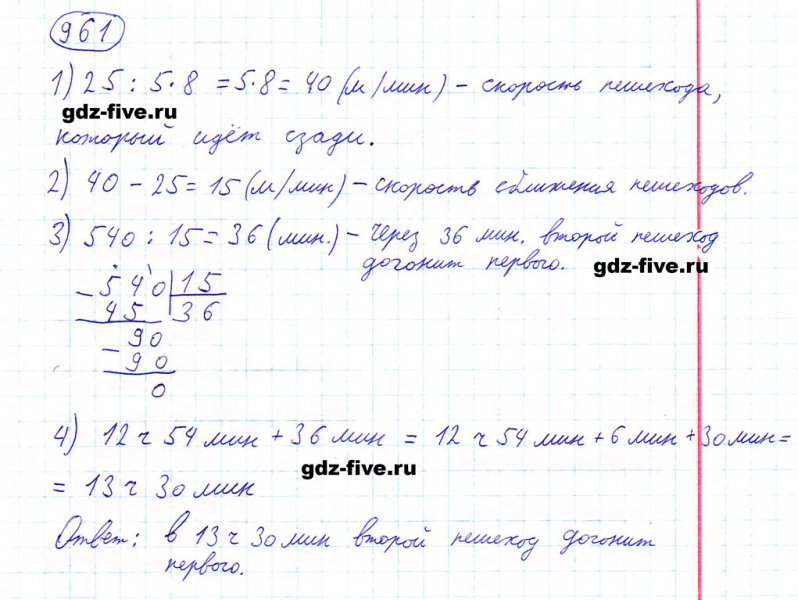 961
1) 25 : 5 · 8 = 5 · 8 = 40 (м/мин) – скорость пешехода,
gdz-five.ru
который идёт сзади.
2) 40 – 25 = 15 (м/мин) – скорость сближения пешеходов.
3) 540 : 15 = 36 (мин.) – Через 36 мин. второй пешеход
догонит первого. gdz-five.ru
– 540 | 15
45 36
– 90
90
0
4) 12 ч 54 мин + 36 мин = 12 ч 54 мин + 6 мин + 30 мин =
gdz-five.ru
= 13 ч 30 мин
Ответ: в 13 ч 30 мин второй пешеход догонит
первого.